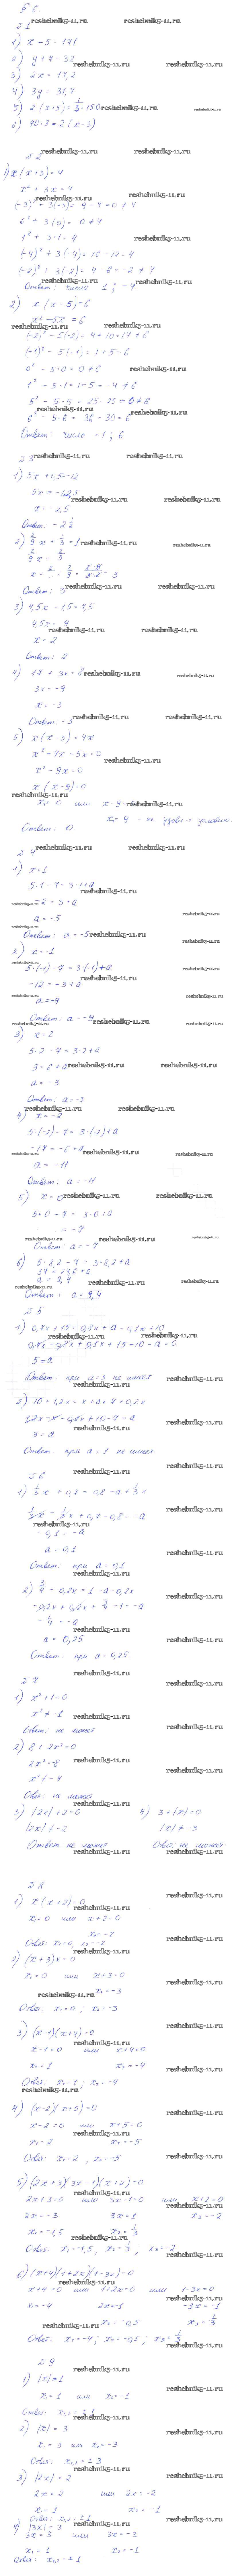 § 6
№ 1
reshebniki5-11.ru reshebniki5-11.ru
1) x - 5 = 171
2) y + 7 = 32
reshebniki5-11.ru reshebniki5-11.ru
3) 2x = 17,2
4) 3y = 31,7
5) 2(x+5) = 1/3 · 150
6) 90 - 3 = 2(x-3)
№ 2
1) x(x+3) = 4
x² + 3x = 4
(-3)² + 3(-3) = 9 - 9 = 0 ≠ 4
0² + 3(0) = 0 ≠ 4
1² + 3·1 = 4
(-4)² + 3(-4) = 16 - 12 = 4
(-2)² + 3(-2) = 4 - 6 = -2 ≠ 4
Ответ: числа 1; -4
reshebniki5-11.ru
2) x(x-5) = 6
x² - 5x = 6
(-2)² - 5(-2) = 4 + 10 = 14 ≠ 6
(-1)² - 5(-1) = 1 + 5 = 6
0² - 5·0 = 0 ≠ 6
1² - 5·1 = 1 - 5 = -4 ≠ 6
5² - 5·5 = 25 - 25 = 0 ≠ 6
6² - 5·6 = 36 - 30 = 6
Ответ: числа -1; 6
№ 3
1) 5x + 0,5 = -12
5x = -12,5
x = -2,5
Ответ: -2 1/2
x =
Ответ: 3
3) 4,5x - 1,5 = 7,5
4,5x = 9
x = 2
Ответ: 2
4) 17 + 3x = 8
3x = -9
x = -3
Ответ: -3
5) x(x-3) = 4x
x² - 9x = 0
x(x-9) = 0
x₁ = 0 или x - 9 = 0
x₂ = 9 - не удовл-т условию
Ответ: 0.
№ 4
1) x = 1
5·1 - 7 = 3·1 + a
-2 = 3 + a
a = -5
Ответ: a = -5
2) x = -1
5·(-1) - 7 = 3·(-1) + a
-12 = -3 + a
a = -9
Ответ: a = -9
3) x = 2
5·2 - 7 = 3·2 + a
3 = 6 + a
a = -3
Ответ: a = -3
4) x = -2
5·(-2) - 7 = 3·(-2) + a
-17 = -6 + a
a = -11
Ответ: a = -11
5) x = 0
5·0 - 7 = 3·0 + a
= -7
Ответ: a = -7
6) 5·8,2 - 7 = 3·8,2 + a
34 = 24,6 + a
a = 9,4
Ответ: a = 9,4
№ 5
1) 0,7x + 15 = 0,8x + a - 0,1x + 10
0,7x - 0,8x + 0,1x + 15 - 10 - a = 0
5 = a
2) 10 + 1,2x = x + a + 7 + 0,2x
1,2x - x - 0,2x + 10 - 7 = a
3 = a
Ответ: при a = 1 не имеет.
№ 6
1) 1/3 x + 0,7 = 0,8 - a + 1/3 x
1/3 x - 1/3 x + 0,7 - 0,8 = -a
-0,1 = -a
a = 0,1
Ответ: при a = 0,1
2) 3/4 - 0,2x = 1 - a - 0,2x
-0,2x + 0,2x + 3/4 - 1 = -a
-1/4 = -a
a = 0,25
Ответ: при a = 0,25.
№ 7
1) x² + 1 = 0
x² ≠ -1
Ответ: не может
2) 8 + 2x² = 0
2x² = -8
x² ≠ -4
Ответ: не может
3) |2x| + 2 = 0 4) 3 + |x| = 0
|2x| ≠ -2 |x| ≠ -3
Ответ: не может Ответ: не может.
№ 8
1) x(x+2) = 0
x₁ = 0 или x + 2 = 0
x₂ = -2
Ответ: x₁ = 0, x₂ = -2
2) (x+3)x = 0
x₁ = 0 или x + 3 = 0
x₂ = -3
Ответ: x₁ = 0; x₂ = -3
3) (x-1)(x+4) = 0
x - 1 = 0 или x + 4 = 0
x₁ = 1 x₂ = -4
Ответ: x₁ = 1; x₂ = -4
4) (x-2)(x+5) = 0
x - 2 = 0 или x + 5 = 0
x₁ = 2 x₂ = -5
Ответ: x₁ = 2, x₂ = -5
5) (2x+3)(3x-1)(x+2) = 0
2x + 3 = 0 или 3x - 1 = 0 или x + 2 = 0
2x = -3 3x = 1 x₃ = -2
x₁ = -1,5 x₂ = 1/3
Ответ: x₁ = -1,5, x₂ = 1/3, x₃ = -2
6) (x+4)(1+2x)(1-3x) = 0
x + 4 = 0 или 1 + 2x = 0 или 1 - 3x = 0
x₁ = -4 2x = 1 -3x = -1
x₂ = -0,5 x₃ = 1/3
Ответ: x₁ = -4, x₂ = -0,5; x₃ = 1/3
№ 9
1) |x| = 1
x₁ = 1 или x₂ = -1
Ответ: x₁,₂ = ± 1
2) |x| = 3
x₁ = 3 или x₂ = -3
Ответ: x₁,₂ = ± 3
3) |2x| = 2
2x = 2 или 2x = -2
x₁ = 1 x₂ = -1
Ответ: x₁,₂ = ± 1
4) |3x| = 3
3x = 3 или 3x = -3
x₁ = 1 x₂ = -1
Ответ: x₁,₂ = ± 1